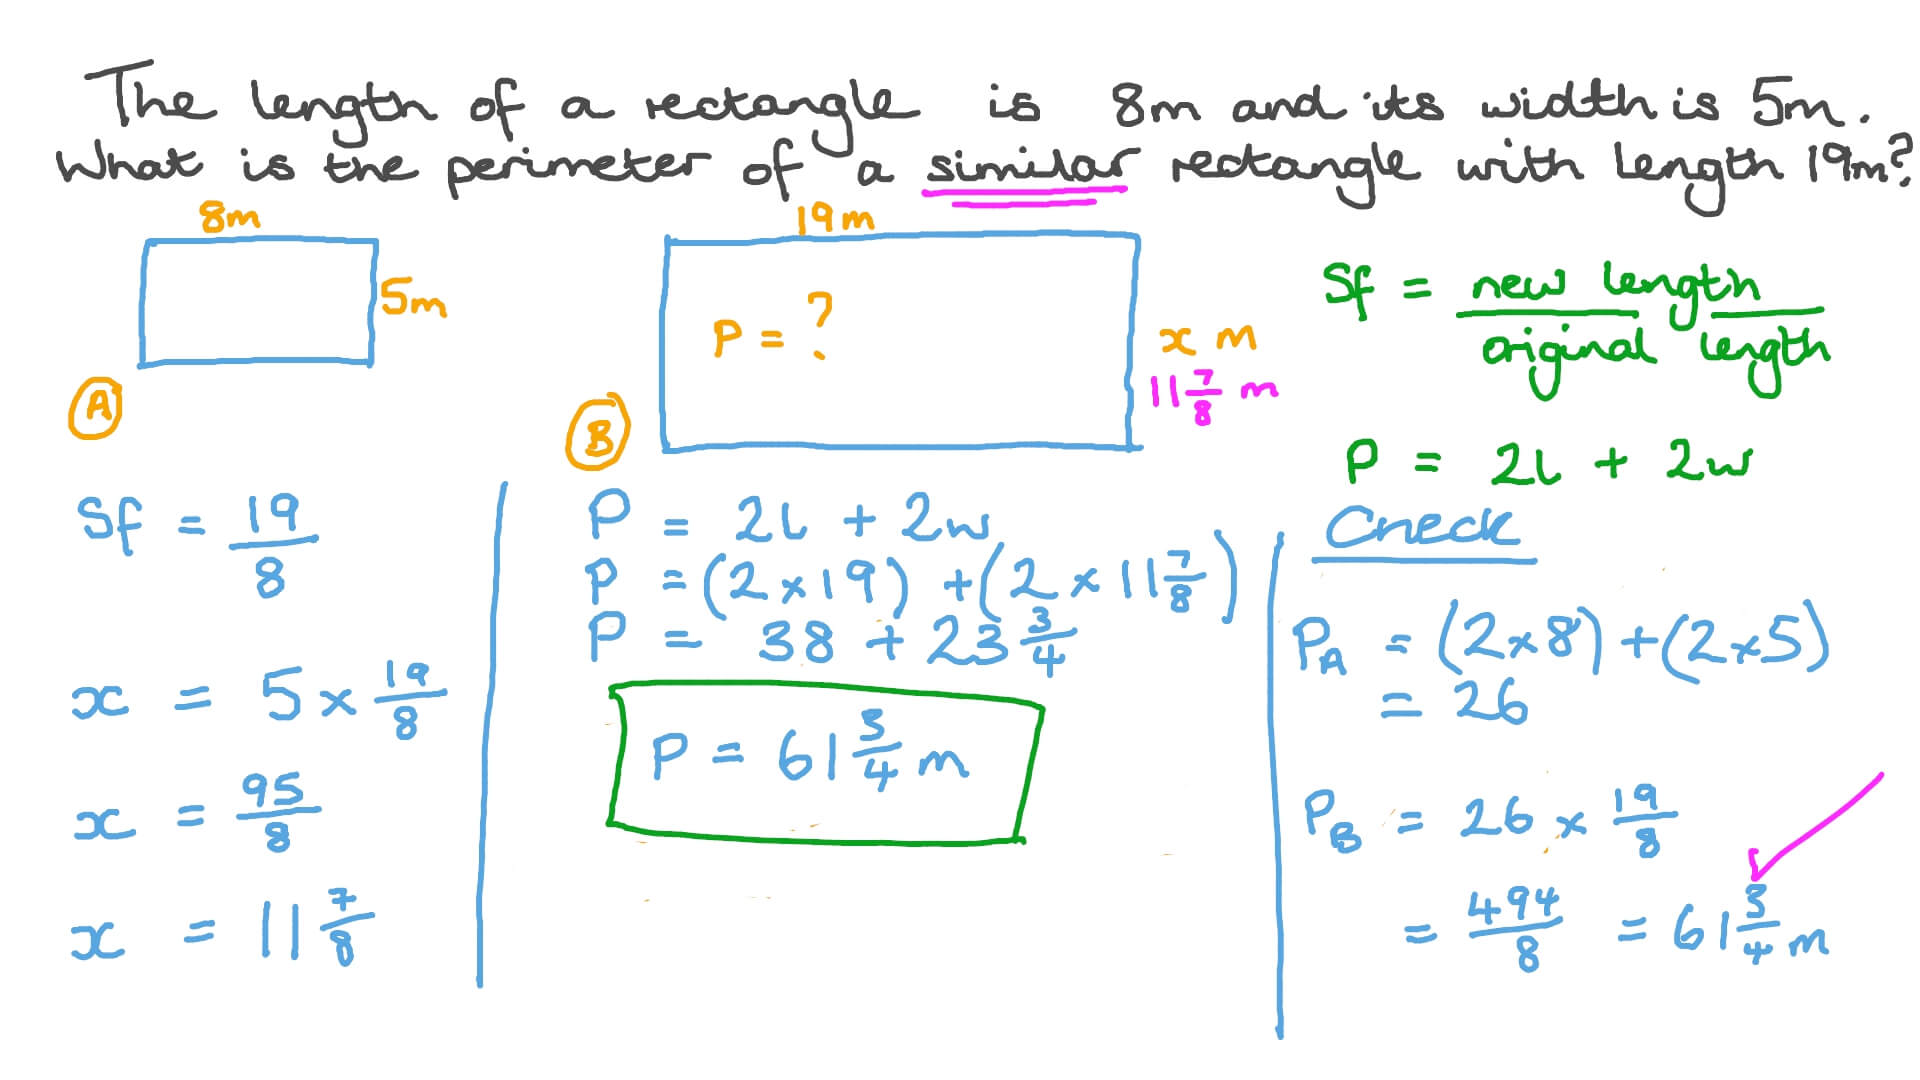 The length of a rectangle is 8m and its width is 5m.
What is the perimeter of a similar rectangle with length 19m?
8m
5m
A
19m
P = ?
x m
11 7/8 m
B
Sf = new length / original length
P = 2l + 2w
Sf = 19/8
x = 5 × 19/8
x = 95/8
x = 11 7/8
P = 2l + 2w
P = (2 × 19) + (2 × 11 7/8)
P = 38 + 23 3/4
P = 61 3/4 m
Check
P_A = (2×8) + (2×5)
= 26
P_B = 26 × 19/8
= 494/8 = 61 3/4 m